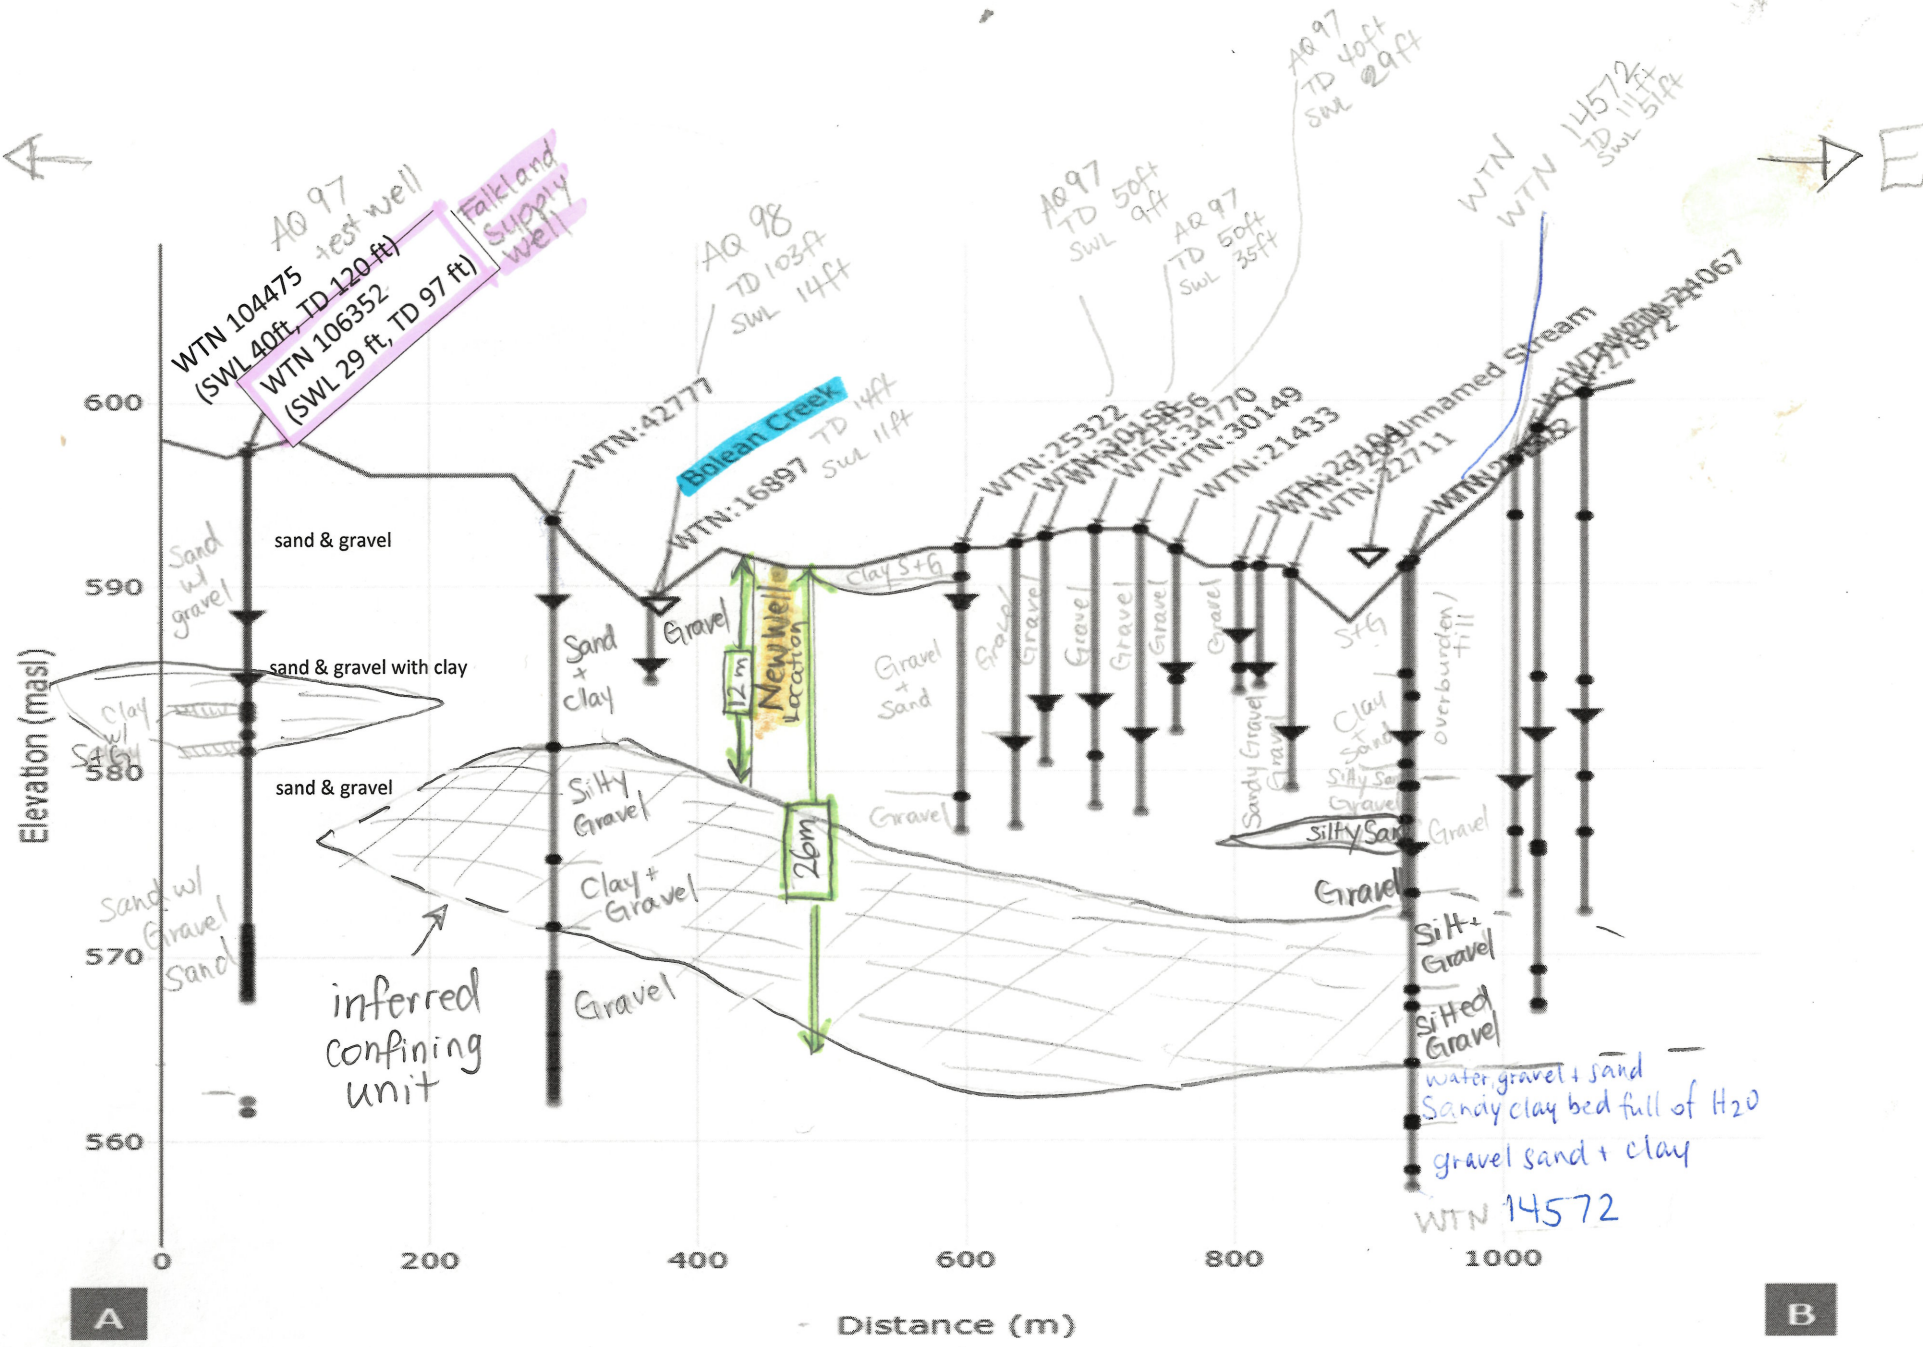 AQ 97
test well
WTN 104475
(SWL 40ft, TD 120 ft)
WTN 106352
(SWL 29 ft, TD 97 ft)
Falkland
Supply
Well
AQ 98
TD 103ft
SWL 14ft
WTN:42777
Bolean Creek
WTN:16897
TD 14ft
SWL 11ft
AQ97
TD 50ft
SWL 9ft
AQ 97
TD 50ft
SWL 35ft
AQ 97
TD 40ft
SWL 29ft
WTN
WTN 14572
TD 111ft
SWL 51ft
E
WTN:25322
WTN:30158
WTN:21456
WTN:34770
WTN:30149
WTN:21433
WTN:22711
Unnamed Stream
Elevation (masl)
600
590
580
570
560
Sand
w/
gravel
sand & gravel
sand & gravel with clay
Clay
w/
S+G
sand & gravel
Sand w/
Gravel
Sand
Sand
+
Clay
Silty
Gravel
Clay +
Gravel
Gravel
inferred
confining
unit
Gravel
12m
New Well
Location
26m
Clay S+G
Gravel
+
Sand
Gravel
Gravel
Gravel
Gravel
Gravel
Gravel
Gravel
Sandy Gravel
Gravel
S+G
overburden/
till
Clay
+
Sand
Silty San
Gravel
Silty San
Gravel
Gravel
Silt +
Gravel
Silted
Gravel
water, gravel + sand
Sandy clay bed full of H2O
gravel sand + clay
WTN 14572
0
200
400
600
800
1000
A
Distance (m)
B